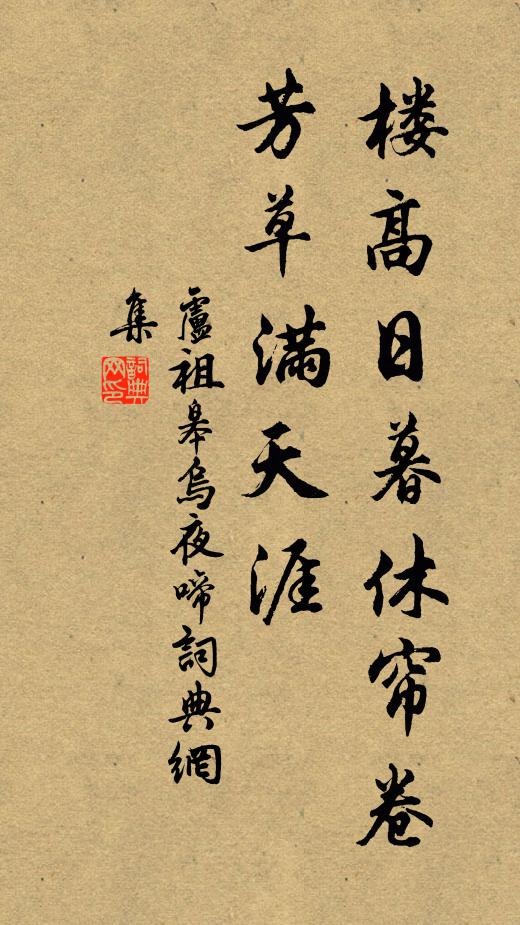 楼高日暮休帘卷
芳草满天涯
盧祖皋烏夜啼詞典網
集
詞典
网印